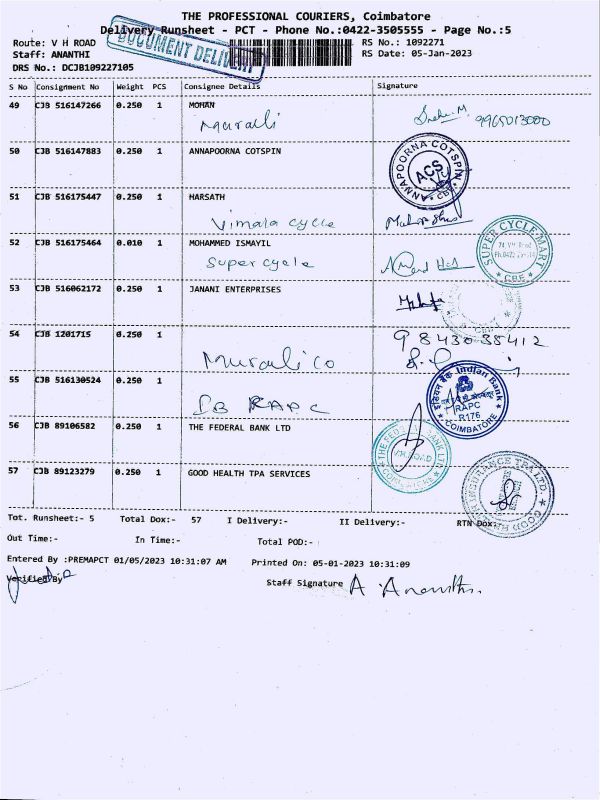 THE PROFESSIONAL COURIERS, Coimbatore
Delivery Runsheet - PCT - Phone No.:0422-3505555 - Page No.:5
DOCUMENT DELIVERY
Route: V H ROAD RS No.: 1092271
Staff: ANANTHI RS Date: 05-Jan-2023
DRS No.: DCJB109227105
S No Consignment No Weight PCS Consignee Details Signature
49 CJB 516147266 0.250 1 MOHAN
Murali 9965013000
50 CJB 516147883 0.250 1 ANNAPOORNA COTSPIN
ANNAPOORNA COTSPIN ACS CBE
51 CJB 516175447 0.250 1 HARSATH
Vimala cycle
52 CJB 516175464 0.010 1 MOHAMMED ISMAYIL
Super cycle
SUPER CYCLE MART CBE
53 CJB 516062172 0.250 1 JANANI ENTERPRISES
54 CJB 1201715 0.250 1 9843038412
Murali co
55 CJB 516130524 0.250 1
IB RAPC
Indian Bank RAPC R176 COIMBATORE
56 CJB 89106582 0.250 1 THE FEDERAL BANK LTD
THE FEDERAL BANK LTD VH.ROAD COIMBATORE
57 CJB 89123279 0.250 1 GOOD HEALTH TPA SERVICES
Tot. Runsheet:- 5 Total Dox:- 57 I Delivery:- II Delivery:- RTN Dox:-
Out Time:- In Time:- Total POD:-
Entered By :PREMAPCT 01/05/2023 10:31:07 AM Printed On: 05-01-2023 10:31:09
Verified By Staff Signature A. Ananthi.